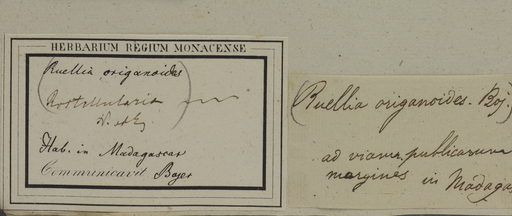 HERBARIUM REGIUM MONACENSE
(Ruellia origanoides
Rostellularia)
N. ab E.
Hab. in Madagascar
Communicavit Bojer
(Ruellia origanoides. Boj.)
ad viarum publicarum
margines in Madaga